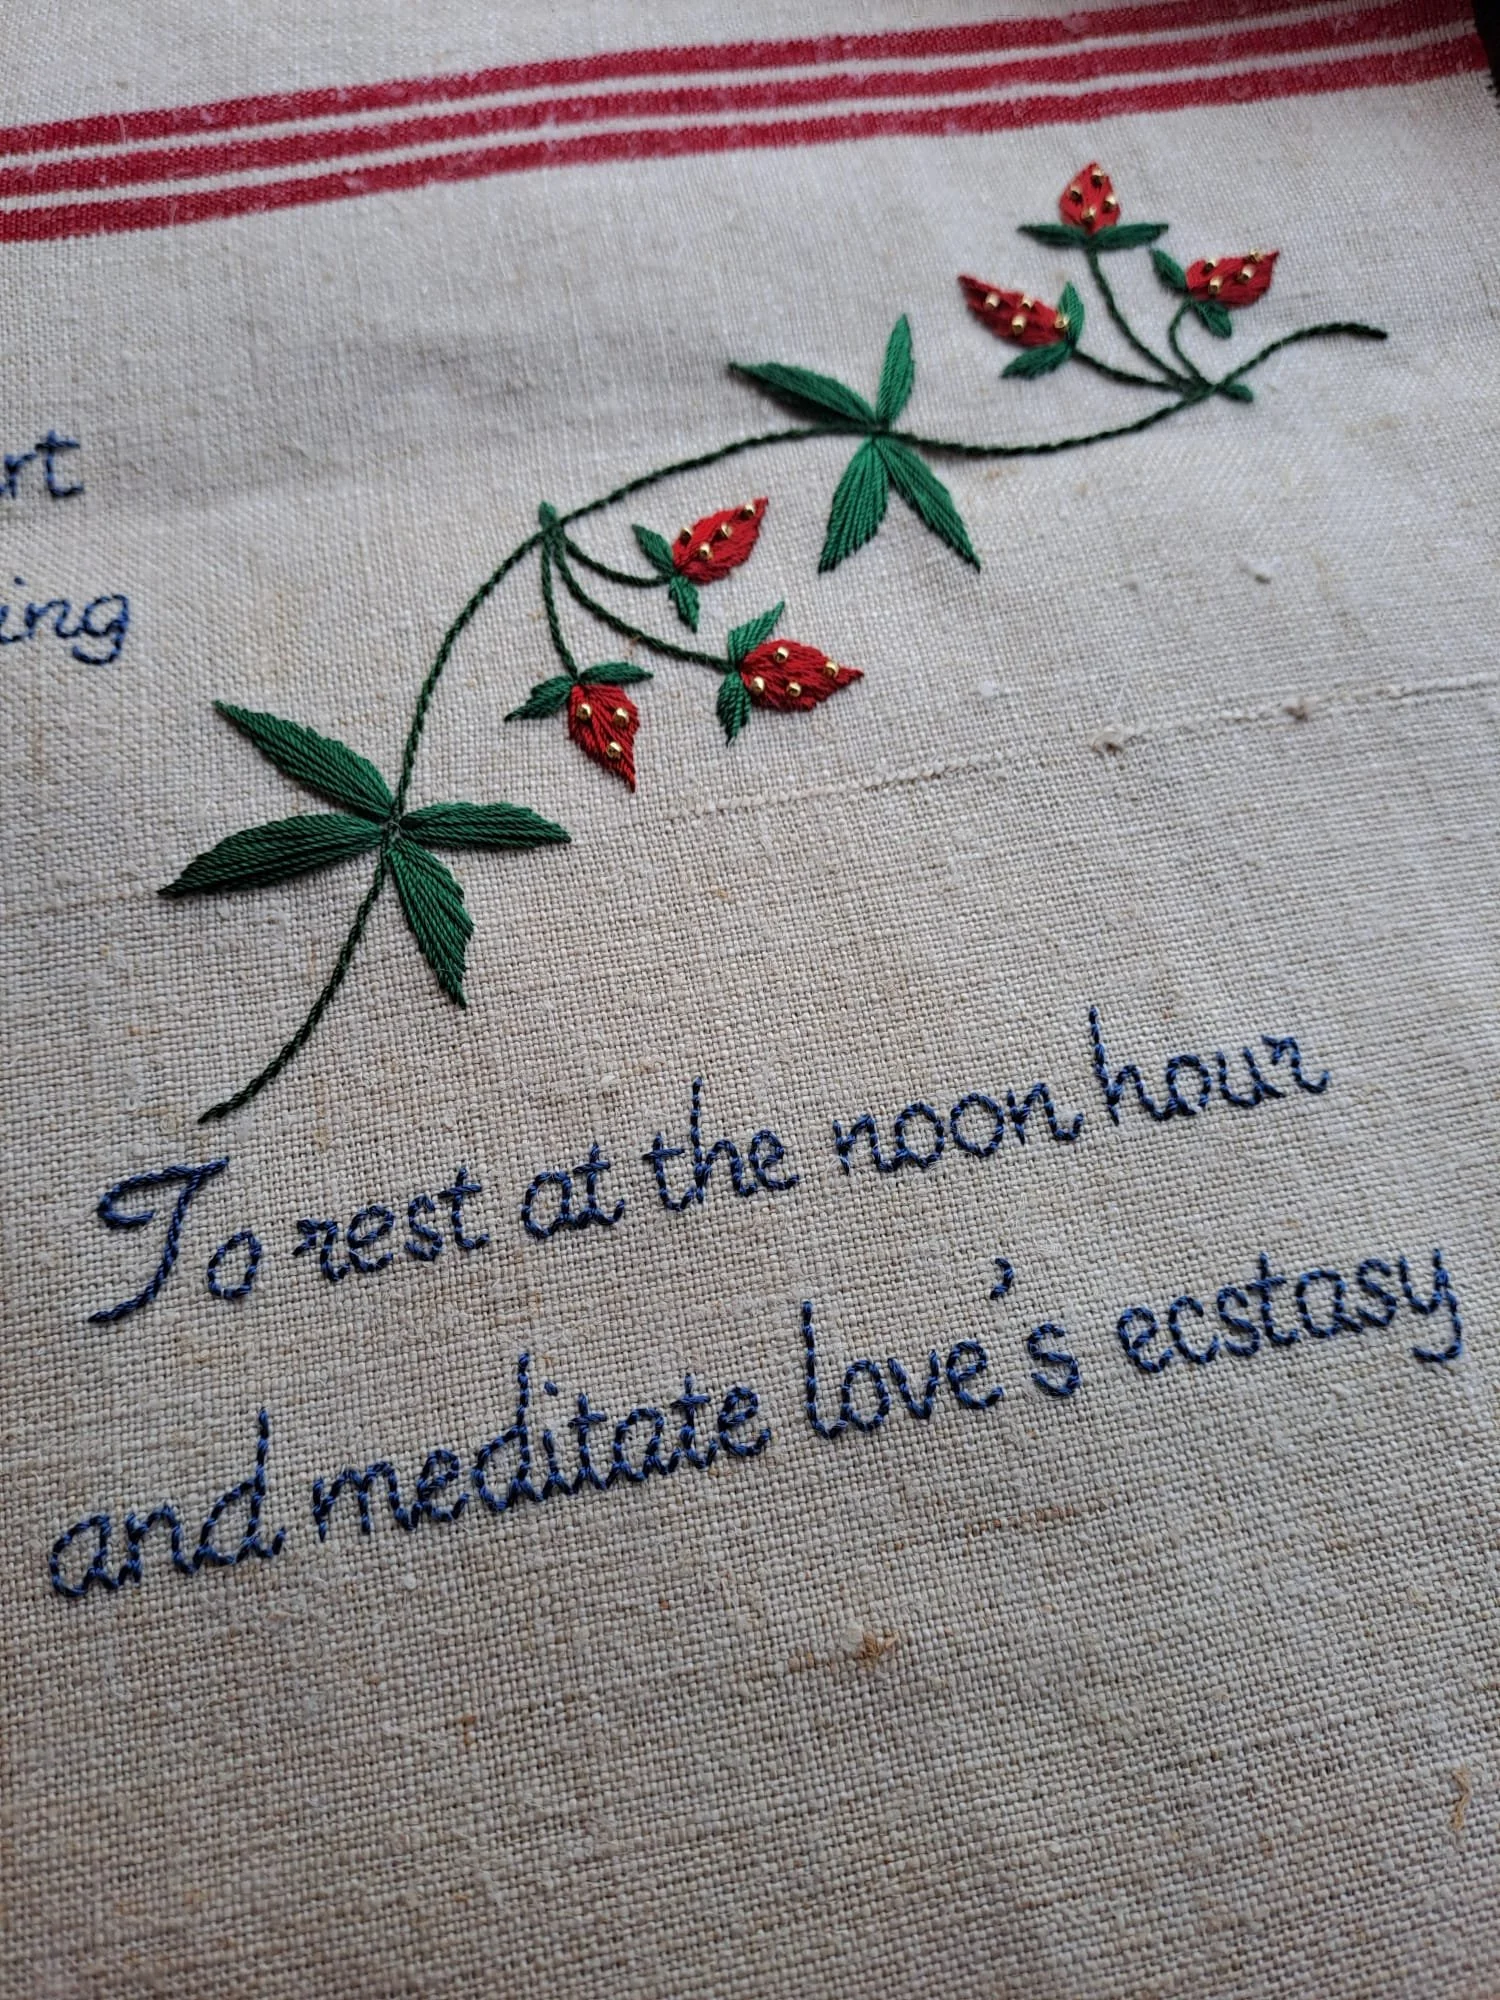 rt
ing
To rest at the noon hour
and meditate love's ecstasy